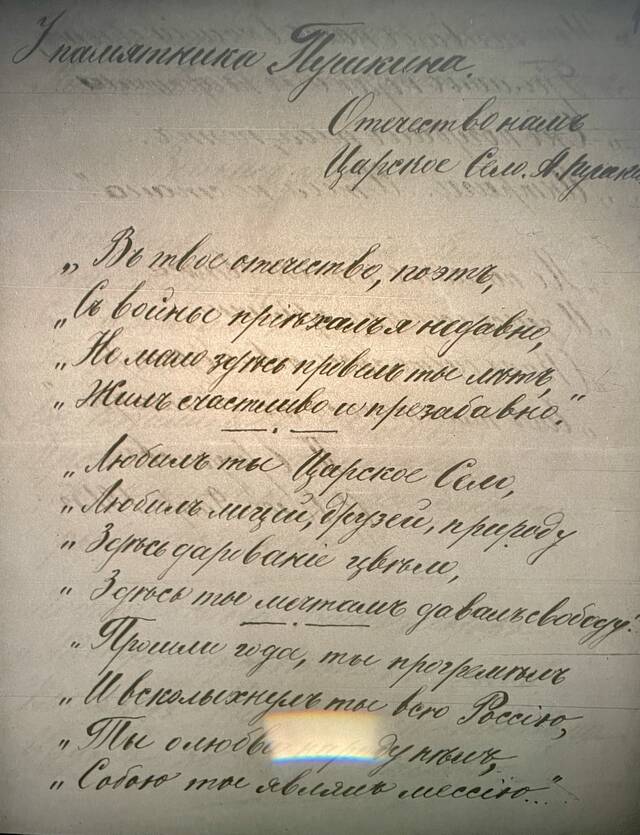 У памятника Пушкина.
Отечество намъ
Царское Село. А. Пушкин
„Въ твое отечество, поэтъ,
„Съ войны пріѣхалъ я недавно,
„Не мало здѣсь провелъ ты лѣтъ,
„Жилъ счастливо и презабавно."
„Любилъ ты Царское Село,
„Любилъ лицей, друзей, природу
„Здѣсь дарованіе цвѣло,
„Здѣсь ты мечтамъ давалъ свободу!
„Прошли года, ты прогремѣлъ
„И всколыхнулъ ты всю Россію,
„Ты о любви народу пѣлъ,
„Собою ты являлъ мессію..."